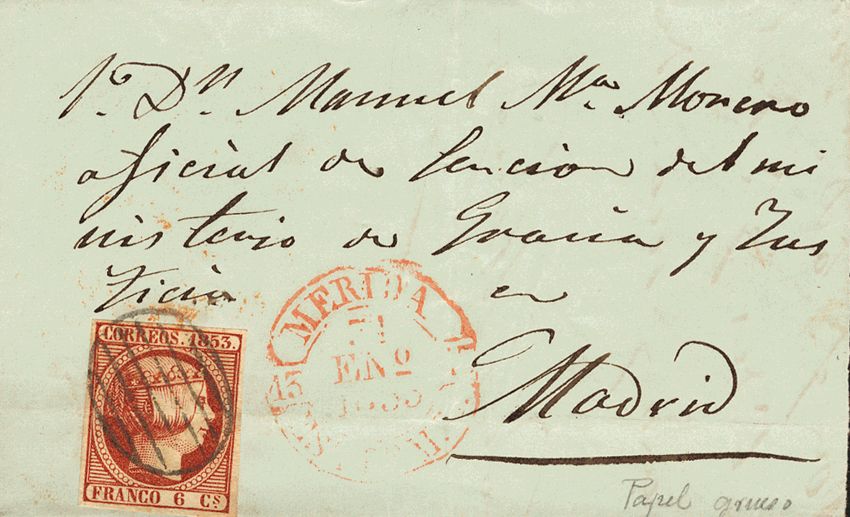 Sr. Dn. Manuel Ma. Moreno
oficial de Seccion del mi
nisterio de Gracia y Jus
ticia en
Madrid
MERIDA
ENº
CORREOS. 1853.
FRANCO 6 Cs.
Papel grueso